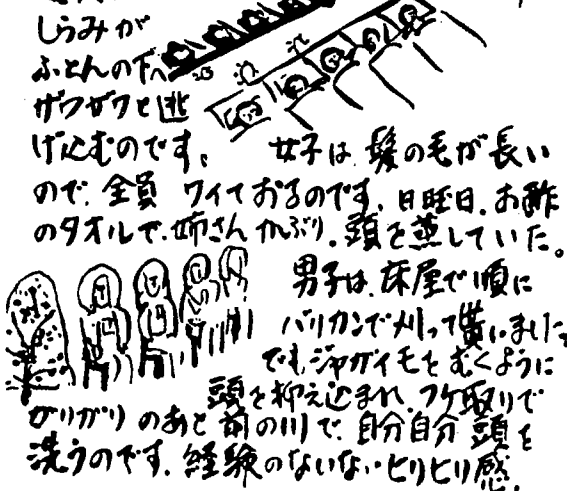 しらみが
ふとんの下へ
ザワザワと逃
げ込むのです。 女子は、髪の毛が長い
ので、全員 ワイておるのです。日曜日、お酢
のタオルで、姉さんかぶり。頭を蒸していた。
男子は、床屋で順に
バリカンで刈って貰いました。
でも、ジャガイモをむくように
頭を抑え込まれ、フケ取りで
がりがりのあと前の川で、自分自分頭を
洗うのです。経験のないないヒリヒリ感。